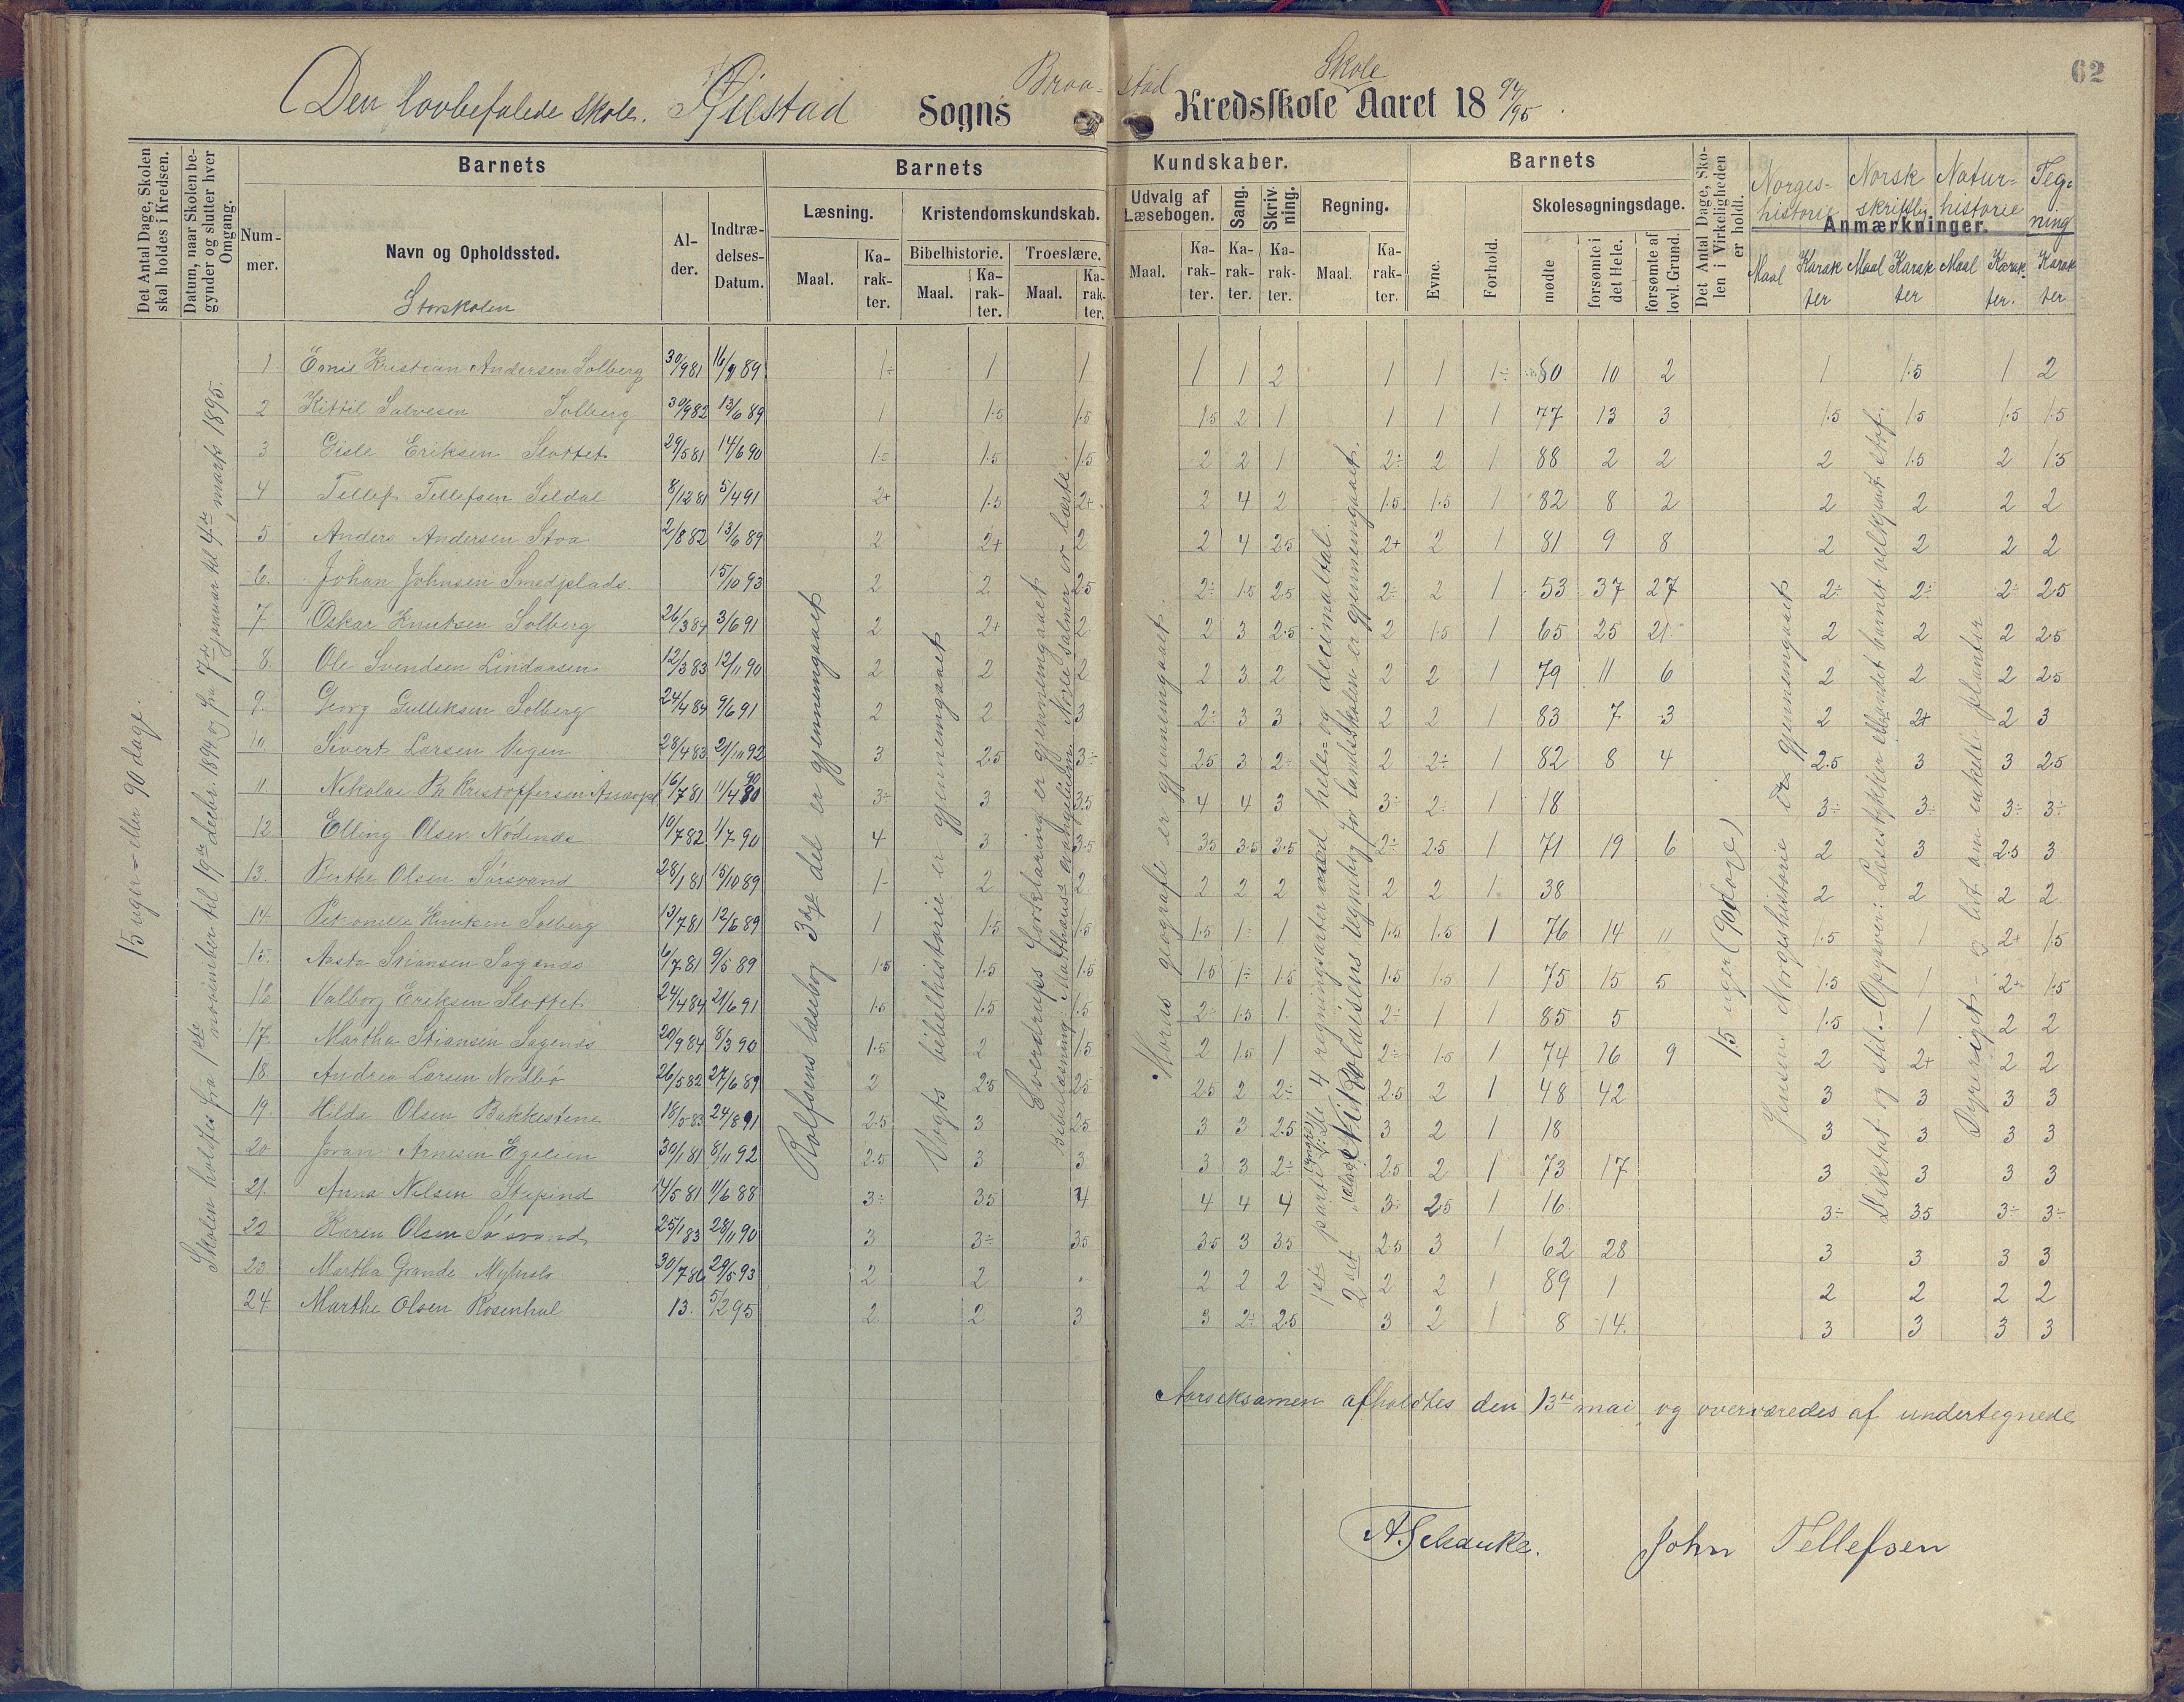 62
Den lovbefalede skole. Øiestad Sogns Braa- stad Skole Kredsskole Aaret 18 94/95.
Det Antal Dage, Skolen skal holdes i Kredsen.
Datum, naar Skolen begynder og slutter hver Omgang.
Barnets
Nummer.
Navn og Opholdssted.
Storskolen
Alder.
Indtrædelses-Datum.
Barnets Kundskaber.
Læsning. Kristendomskundskab. Udvalg af Læsebogen. Sang. Skrivning. Regning.
Bibelhistorie. Troeslære.
Maal. Karakter. Maal. Karakter. Maal. Karakter. Maal. Karakter. Karakter. Karakter. Maal. Karakter.
Barnets
Evne. Forhold. Skolesøgningsdage.
mødte forsømte i det Hele. forsømte af lovl. Grund.
Det Antal Dage, Skolen i Virkeligheden er holdt.
Anmærkninger.
Norges-historie Norsk skriftlig Natur-historie Teg-ning
Maal Karakter Maal Karakter Maal Karakter. Karakter
15 uger - eller 90 dage.
Skolen holdtes fra 1ste november til 19de decbr. 1894 og fra 7de januar til 4de marts 1895.
Rolfsens læsebog 3dje del er gjennemgaaet
Vogts bibelhistorie er gjennemgaaet
Sverdrups forklaring er gjennemgaaet
Bibellæsning: Matthæus evangelium. Nogle salmer er lærte.
Horns geografi er gjennemgaaet.
1ste parti: De 4 regningsarter med hele- og decimaltal.
2det Nicolaisens regnebog for landsskolen er gjennemgaaet.
15 uger (90 dage)
Jensens Norgeshistorie er gjennemgaaet
Diktat og stil. - Opgaver: Læsestykker eller andet barnet velkjent stof.
Dyreriget - og lidt om enkelte planter
1 Ernie Kristian Andersen Solberg 30/9 81 16/9 89 1÷ 1 1 1 1 2 1 1 1÷ 80 10 2 1 1.5 1 2
2 Kittil Salvesen Solberg 30/9 82 13/6 89 1 1.5 1.5 1.5 2 1 1 1 1 77 13 3 1.5 1.5 1.5 1.5
3 Gisle Eriksen Slottet 29/5 81 14/6 90 1.5 1.5 1.5 2 2 1 2÷ 2 1 88 2 2 2 1.5 2 1.5
4 Tellef Tellefsen Seldal 8/12 81 5/4 91 2+ 1.5 2+ 2 4 2 1.5 1.5 1 82 8 2 2 2 2 2
5 Anders Andersen Stoa 2/8 82 13/6 89 2 2+ 2 2 4 2.5 2+ 2 1 81 9 8 2 2 2 2
6. Johan Johnsen Smedplads 15/10 93 2 2 2.5 2÷ 1.5 2.5 2÷ 2 1 53 37 27 2÷ 2÷ 2÷ 2.5
7. Oskar Knutsen Solberg 26/3 84 3/6 91 2 2+ 2 2 3 2.5 2 1.5 1 65 25 21 2 2 2 2.5
8. Ole Svendsen Lindaasen 12/3 83 12/11 90 2 2 2 2 3 2 2 2 1 79 11 6 2 2 2 2.5
9. Georg Gulliksen Solberg 24/4 84 9/6 91 2 2 3 2÷ 3 3 2 2 1 83 7 3 2 2+ 2 3
10 Sivert Larsen Vigen 28/4 83 21/11 92 3 2.5 3÷ 2.5 3 2÷ 2 2÷ 1 82 8 4 2.5 3 3 2.5
11. Nikolai Kristoffersen 16/7 81 11/4 90 3÷ 3 3.5 4 4 3 3÷ 2÷ 1 18 3÷ 3÷ 3÷ 3÷
12 Elling Olsen Nødenes 10/7 82 1/7 90 4 3 3.5 3.5 3.5 3.5 2÷ 2.5 1 71 19 6 2 3 2.5 3
13. Berthe Olsen Sørsvand 28/1 81 15/10 89 1- 2 2 2 2 2 2 2 1 38 2 2 2 2
14. Petronelle Knutsen Solberg 13/7 81 12/6 89 1 1.5 1.5 1.5 1÷ 1 1.5 1.5 1 76 14 11 1.5 1 2+ 1.5
15. Aasta Stiansen Sagenes 6/7 81 9/5 89 1.5 1.5 1.5 1.5 1÷ 1.5 1.5 1.5 1 75 15 5 1.5 1 2+ 1.5
16 Valborg Eriksen Slottet 24/4 84 21/6 91 1.5 1.5 1.5 2÷ 1.5 1 2÷ 1 1 85 5 1.5 1 2 2
17. Martha Stiansen Sagenes 20/9 84 8/3 90 1.5 2 1.5 2 1.5 1 2÷ 1.5 1 74 16 9 2 2+ 2 2
18. Andrea Larsen Nordbø 26/5 82 27/6 89 2 2.5 2.5 2.5 2 2÷ 2.5 2 1 48 42 3 3 3 3
19. Hilda Olsen Bakkestene 18/5 83 24/8 91 2.5 3 2.5 3 3 2.5 3 2 1 18 3 3 3 3
20 Joran Arnesen Egelien 30/1 81 8/11 92 2.5 3 3 3 3 2÷ 2.5 2 1 73 17 3 3 3 3
21. Anna Nilsen Stupind 14/5 81 11/6 88 3÷ 3.5 4 4 4 4 3÷ 2.5 1 16 3÷ 3.5 3÷ 3÷
22. Karen Olsen Sørsvand 25/1 83 28/11 90 3 3÷ 3.5 3.5 3 3.5 2.5 3 1 62 28 3 3 3 3
23. Martha Grande Myhrslo 30/7 86 29/5 93 2 2 2 2 2 2 2 1 89 1 2 2 2 2
24. Marthe Olsen Rosenhal 13. 5/2 95 2 2 3 3 2÷ 2.5 3 2 1 8 14. 3 3 3 3
Aarseksamen afholdtes den 13de mai og overværedes af undertegnede
A. Schanke. John Tellefsen